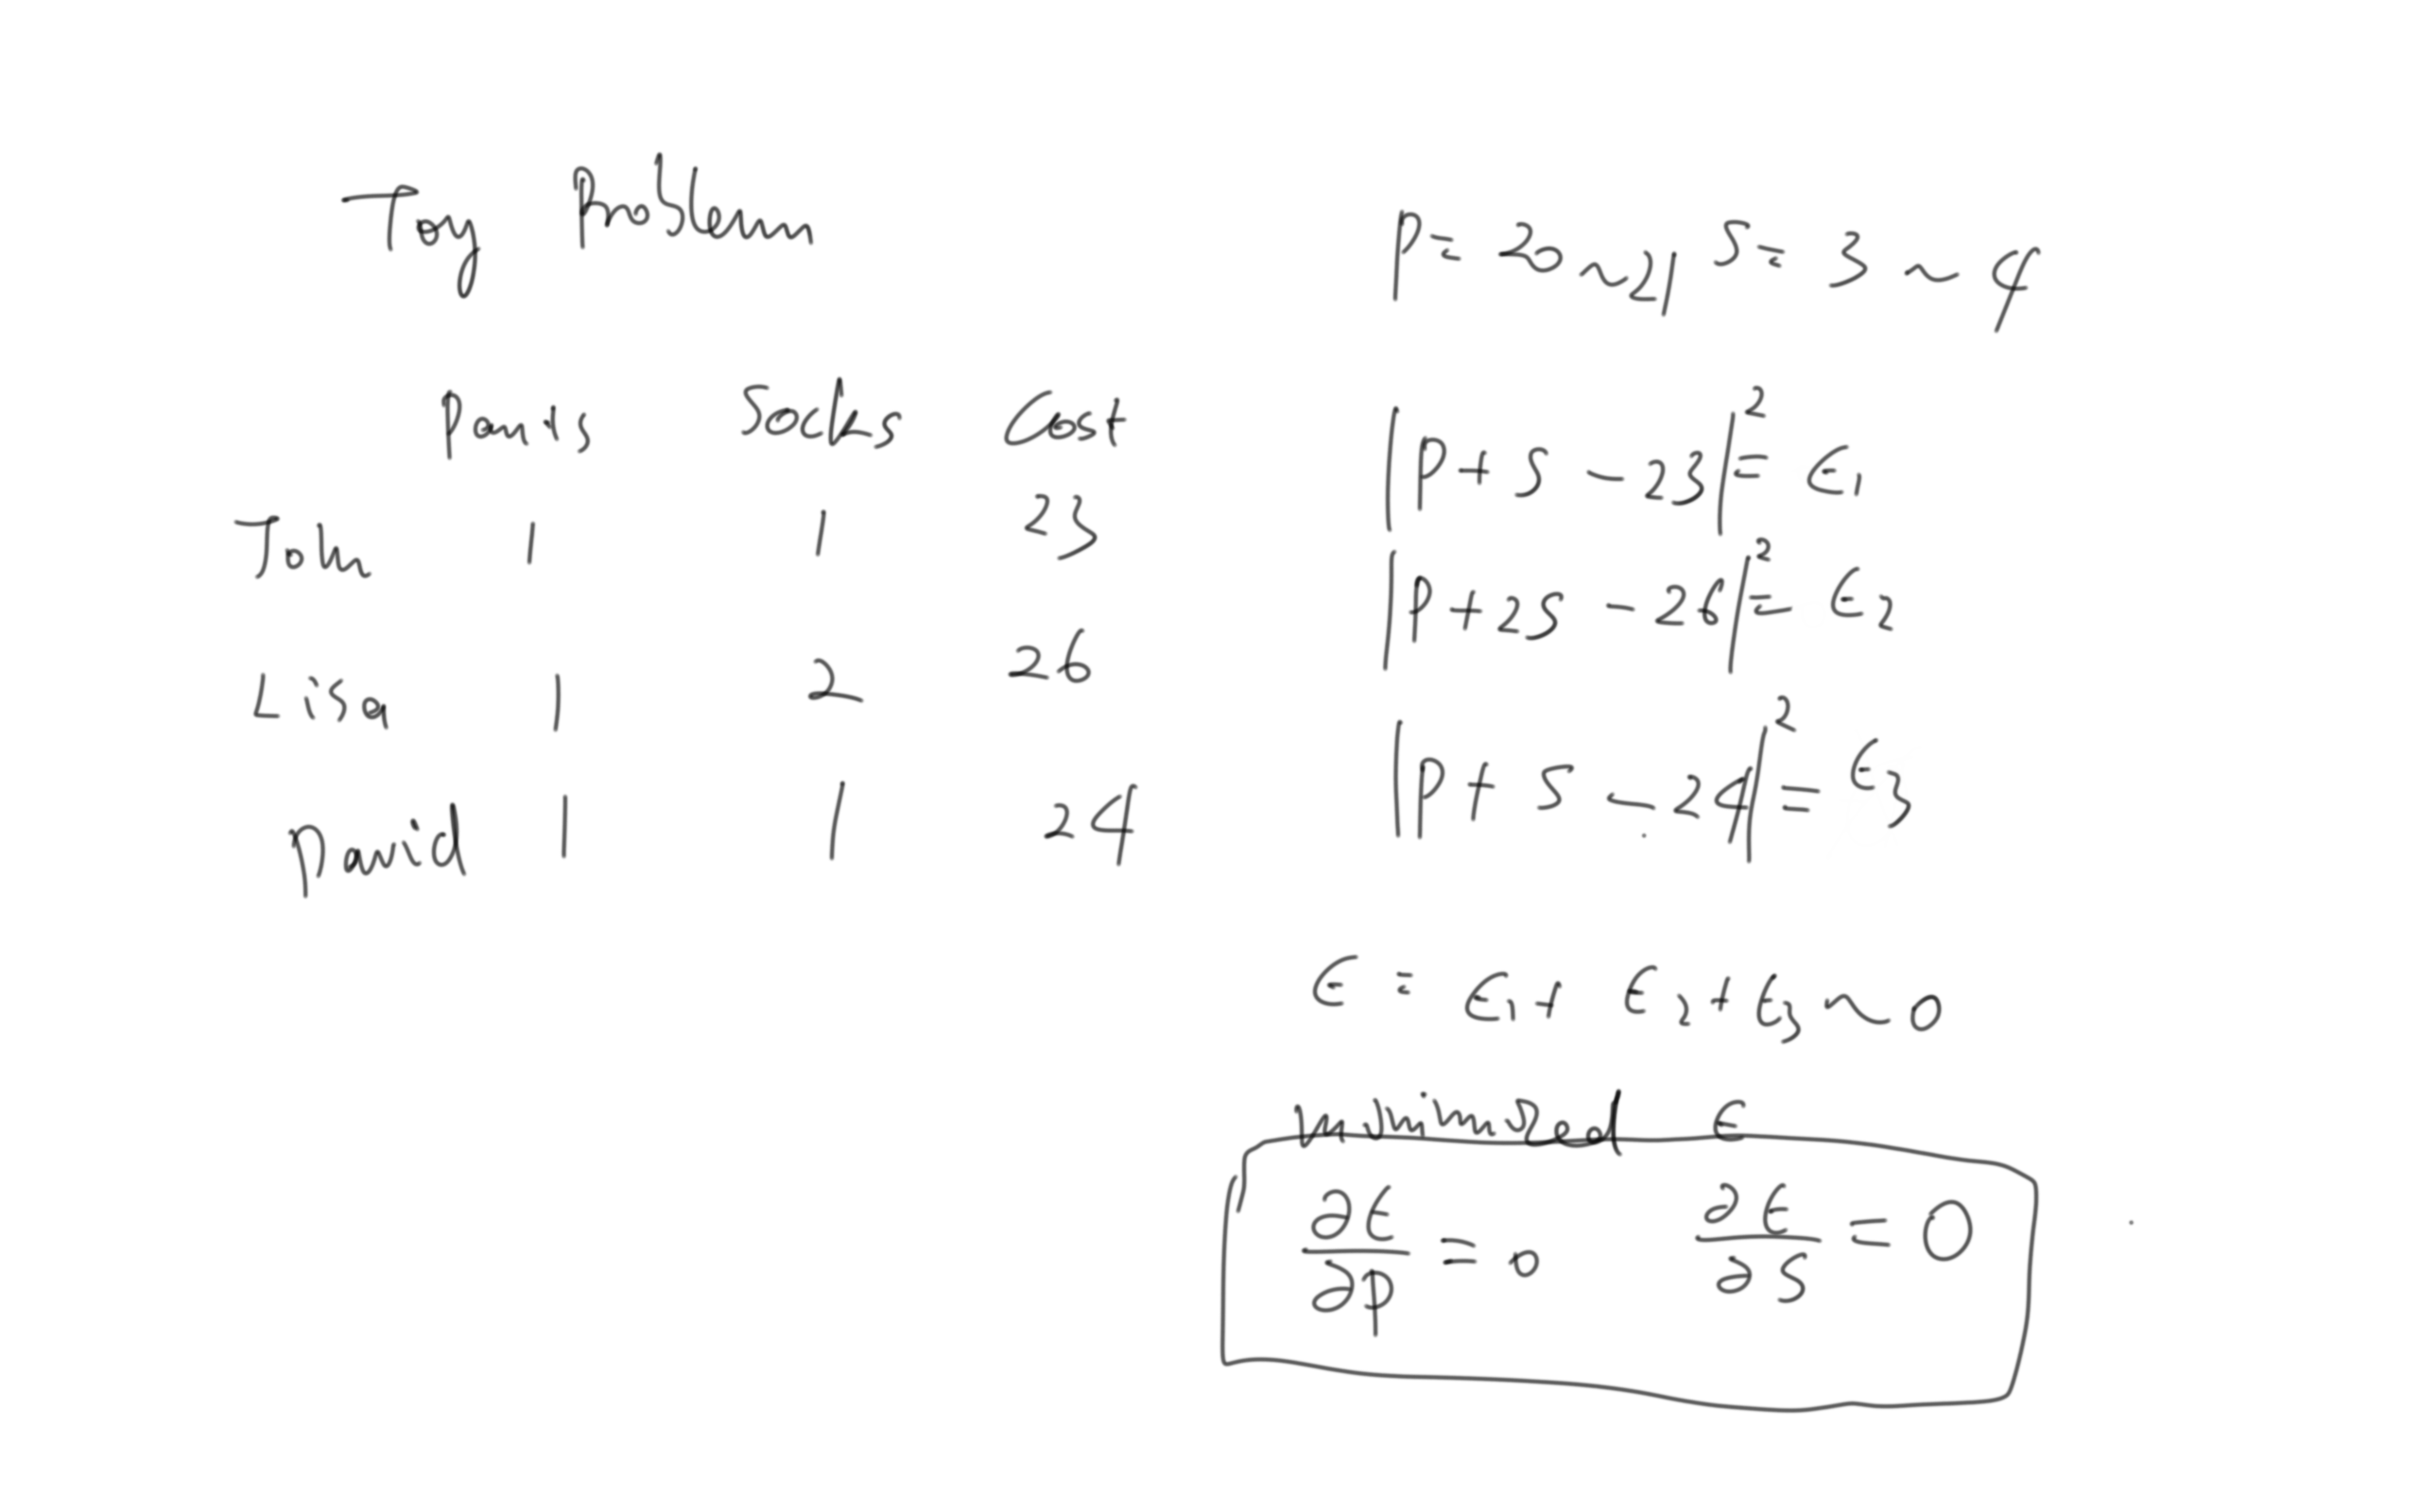 Toy problem
Pants Socks Cost
John 1 1 23
Lisa 1 2 26
David 1 1 24
P = 20 ~ 21 S = 3 ~ 4
|P + S - 23|² = ϵ₁
|P + 2S - 26|² = ϵ₂
|P + S - 24|² = ϵ₃
ϵ = ϵ₁ + ϵ₂ + ϵ₃ ~ 0
minimsed ϵ
∂ϵ/∂P = 0 ∂ϵ/∂S = 0